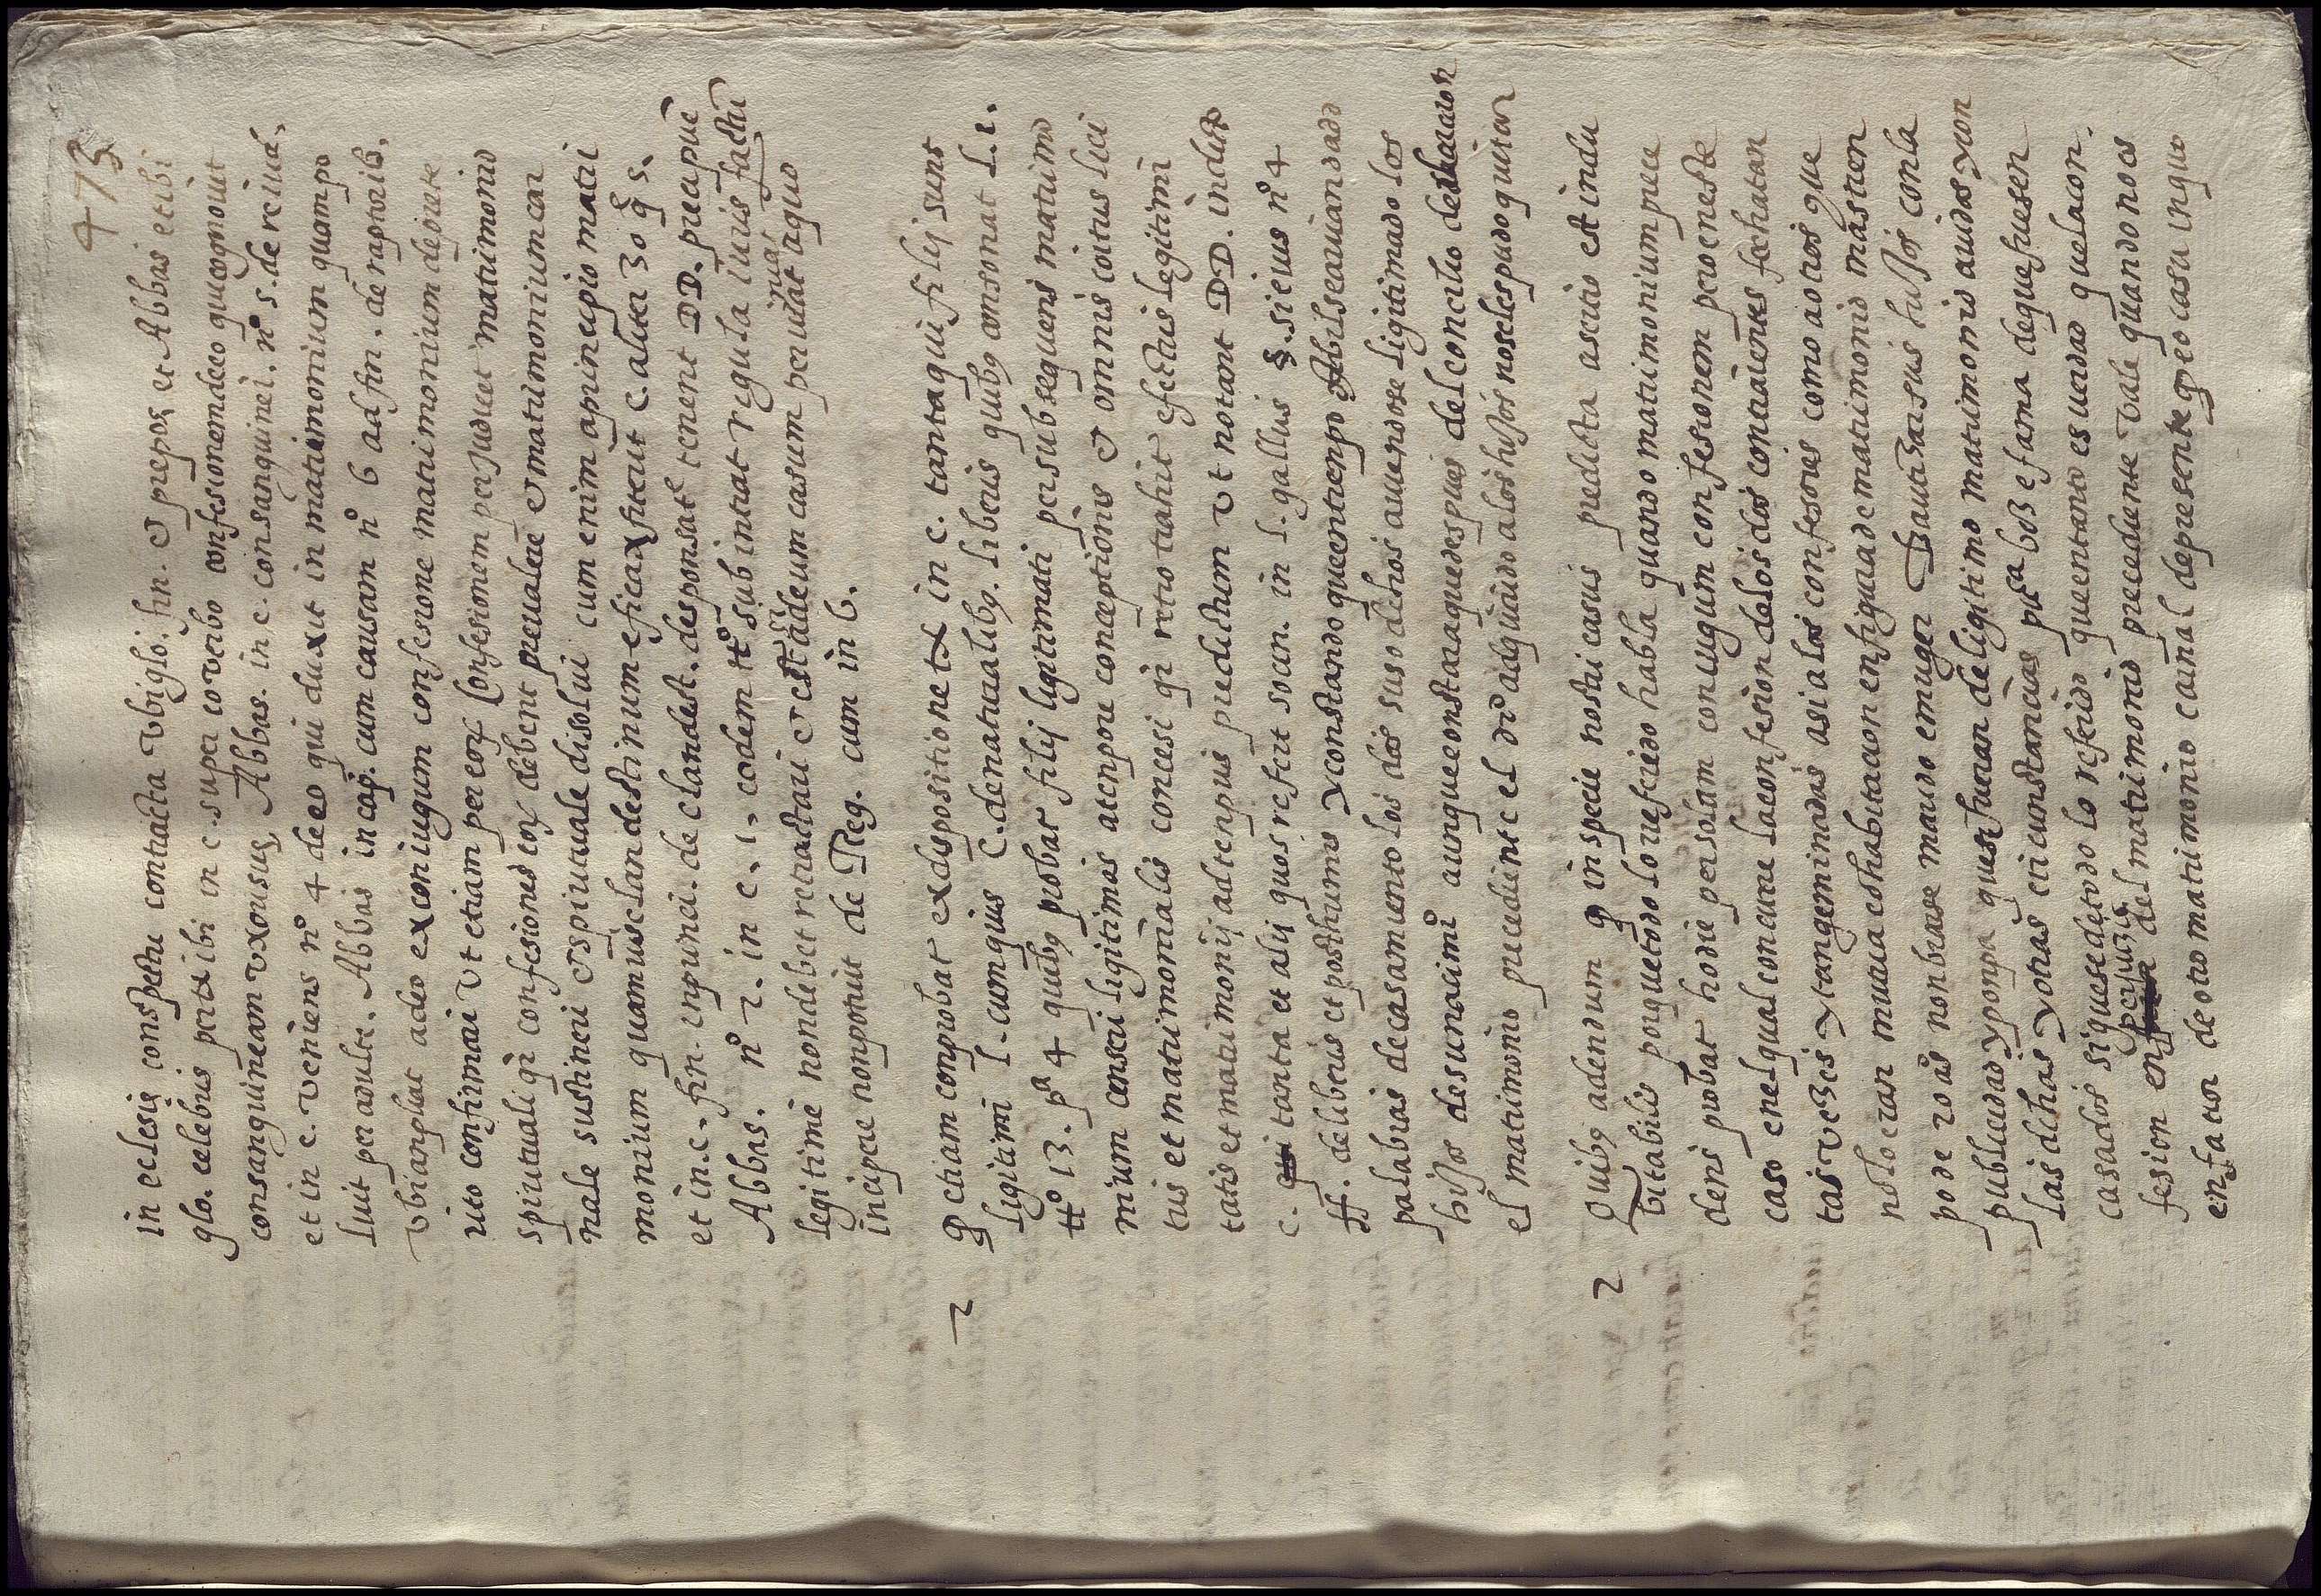 473
in eclesię conspectu contracta vbi glo. fin. et prepos et Abbas et ibi
glo. celebris per tx ibi in c. super eo verbo confesionem de eo que cognouit
consanguineam vxorisuę Abbas. in c. consanguinei. nº 5. de re iud.
et in c. veniens nº 4 de eo qui duxit in matrimonium quam po
luit per adulte. Abbas in cap. cum causam nº 6 ad fin. de raptorib.
vbi anpliat adeo ex coniugum confesione matrimonium de prete
rito confirmari vt etiam per eorͫ Confesionem per Judicet matrimonio
spirituali qͥ confesiones eorͫ debent preualere et matrimonium car
nale sustineri et spirituale disolui cum enim a principio matri
monium quamuis clandestinum eficax fuerit c. aliter 30 q 5.
et in. c. fin. inpunci. de clandest. desponsat tenent DD. precipue
Abbas. nº 2. in c. 1. eodem ttº sub intrat regula iuis factū
legitime non debet retractari et si tādeum casum perueniat a quo
incipere non potuit de Reg. cum in 6.
2 qͩ etiam comprobat ex dispositione tx in c. tanta qui filij sunt
ligitimi l. cum quis C. de naturalibꝰ. liberis quibꝰ consonat l. 1.
ttº 13. pª 4 quibꝰ probat filij ligitimati per subsequens matrimo
nium censeri ligitimos a tenpore conceptionis et omnis coitus lici
tus et matrimonialis concesi qͥ retro trahit efectus legitimi
tatis et matrimonij ad tenpus predictum vt notant DD. in dicto
c. tanta et alij quos refert socin. in l. gallus §. si eius nº 4
ff. de liberis et posthumis y constando que en tienpo abil se avian dado
palabras de casamiento los dos suso dichos aviendose ligitimado los
hijos de su nacimiº aunque constara que despues del concilio de trento
el matrimonio precediente el drº adquirido a los hijos no se les pudo quitar
2 quibꝰ adendum qͩ in specie nostri casus predicta asertio est indu
bitabilis porque todo lo referido habla quando matrimonium prece
dens probat hodie per solam coniugum confesionem pero en este
caso en el qual concurre la confesion de los dos contraientes fecha tan
tas vezes y tan geminadas asi a los confesores como a otros que
no lo eran mutua cohabitacion en figura de matrimonio mas tien
po de 20 as nonbrarse marido e muger Bautizar sus hijos con la
publicidad y ponpa que si fueran de ligitimo matrimonio auidos y con
las dichas y otras circunstancias puca boz e fama de que fuesen
casados siguese de todo lo referido que en tanto es verdad que la con
fesion en perjuiº del matrimonio precediente vale quando no es
en fauor de otro matrimonio carnal de presente qͩ eo casu in quo